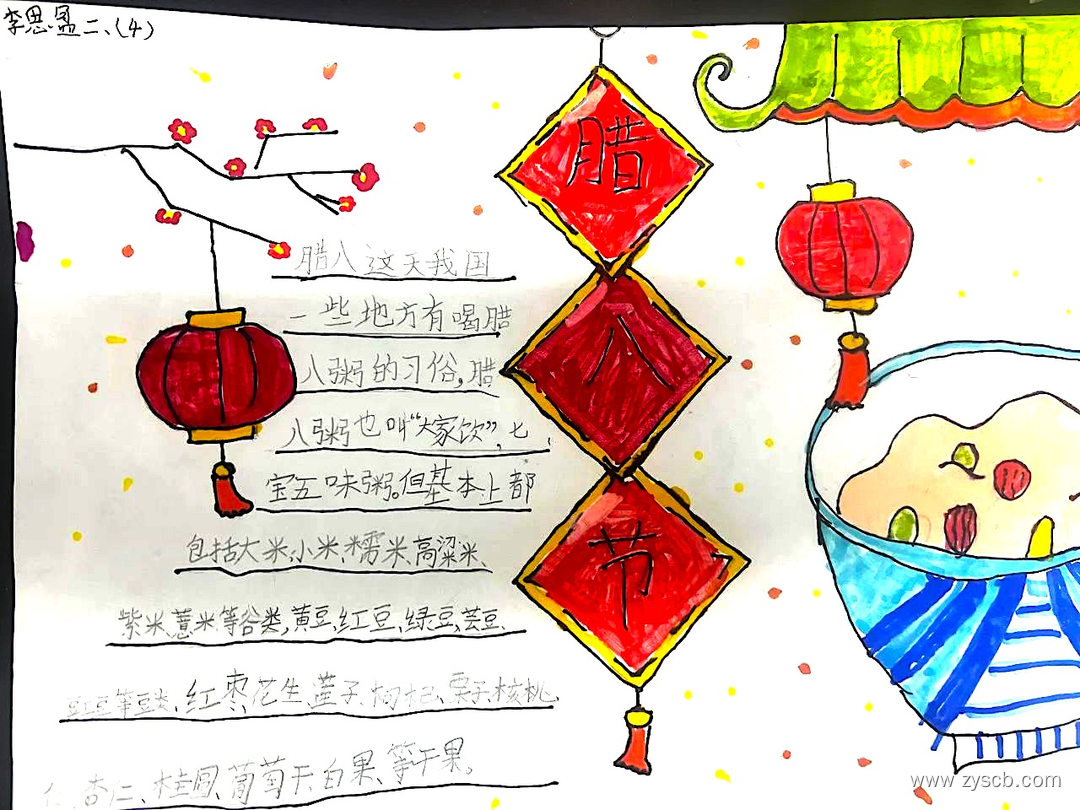 李思盈二、(4)
腊八节
腊八这天我国
一些地方有喝腊
八粥的习俗,腊
八粥也叫“大家饮”,七
宝五味粥。但基本上都
包括大米、小米、糯米、高粱米、
紫米、薏米等谷类,黄豆、红豆、绿豆、芸豆、
豇豆等豆类、红枣、花生、莲子、枸杞、栗子、核桃
仁、杏仁、桂圆、葡萄干、白果、等干果。
www.zyscb.com